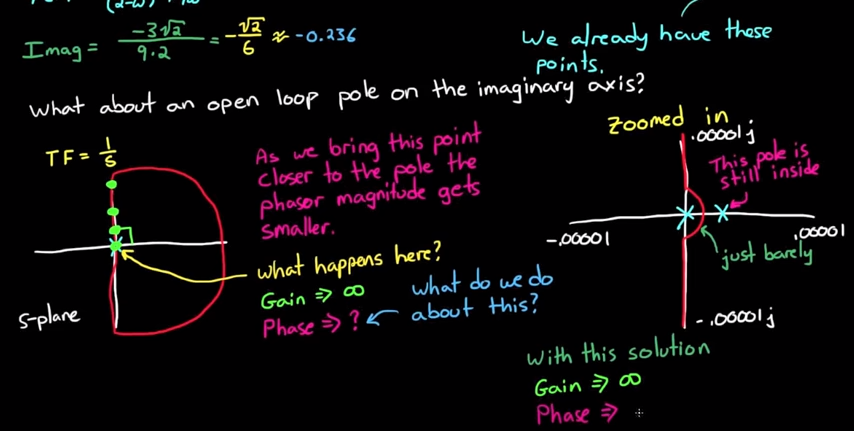 (2-ω)
Imag = -3√2 / 9·2 = -√2/6 ≈ -0.236
We already have these
points.
What about an open loop pole on the imaginary axis?
TF = 1/s
As we bring this point
closer to the pole the
phasor magnitude gets
smaller.
What happens here?
Gain ⇒ ∞
Phase ⇒ ?
What do we do
about this?
S-plane
Zoomed in
.00001j
This pole is
still inside
-.00001
.00001
just barely
-.00001j
With this solution
Gain ⇒ ∞
Phase ⇒